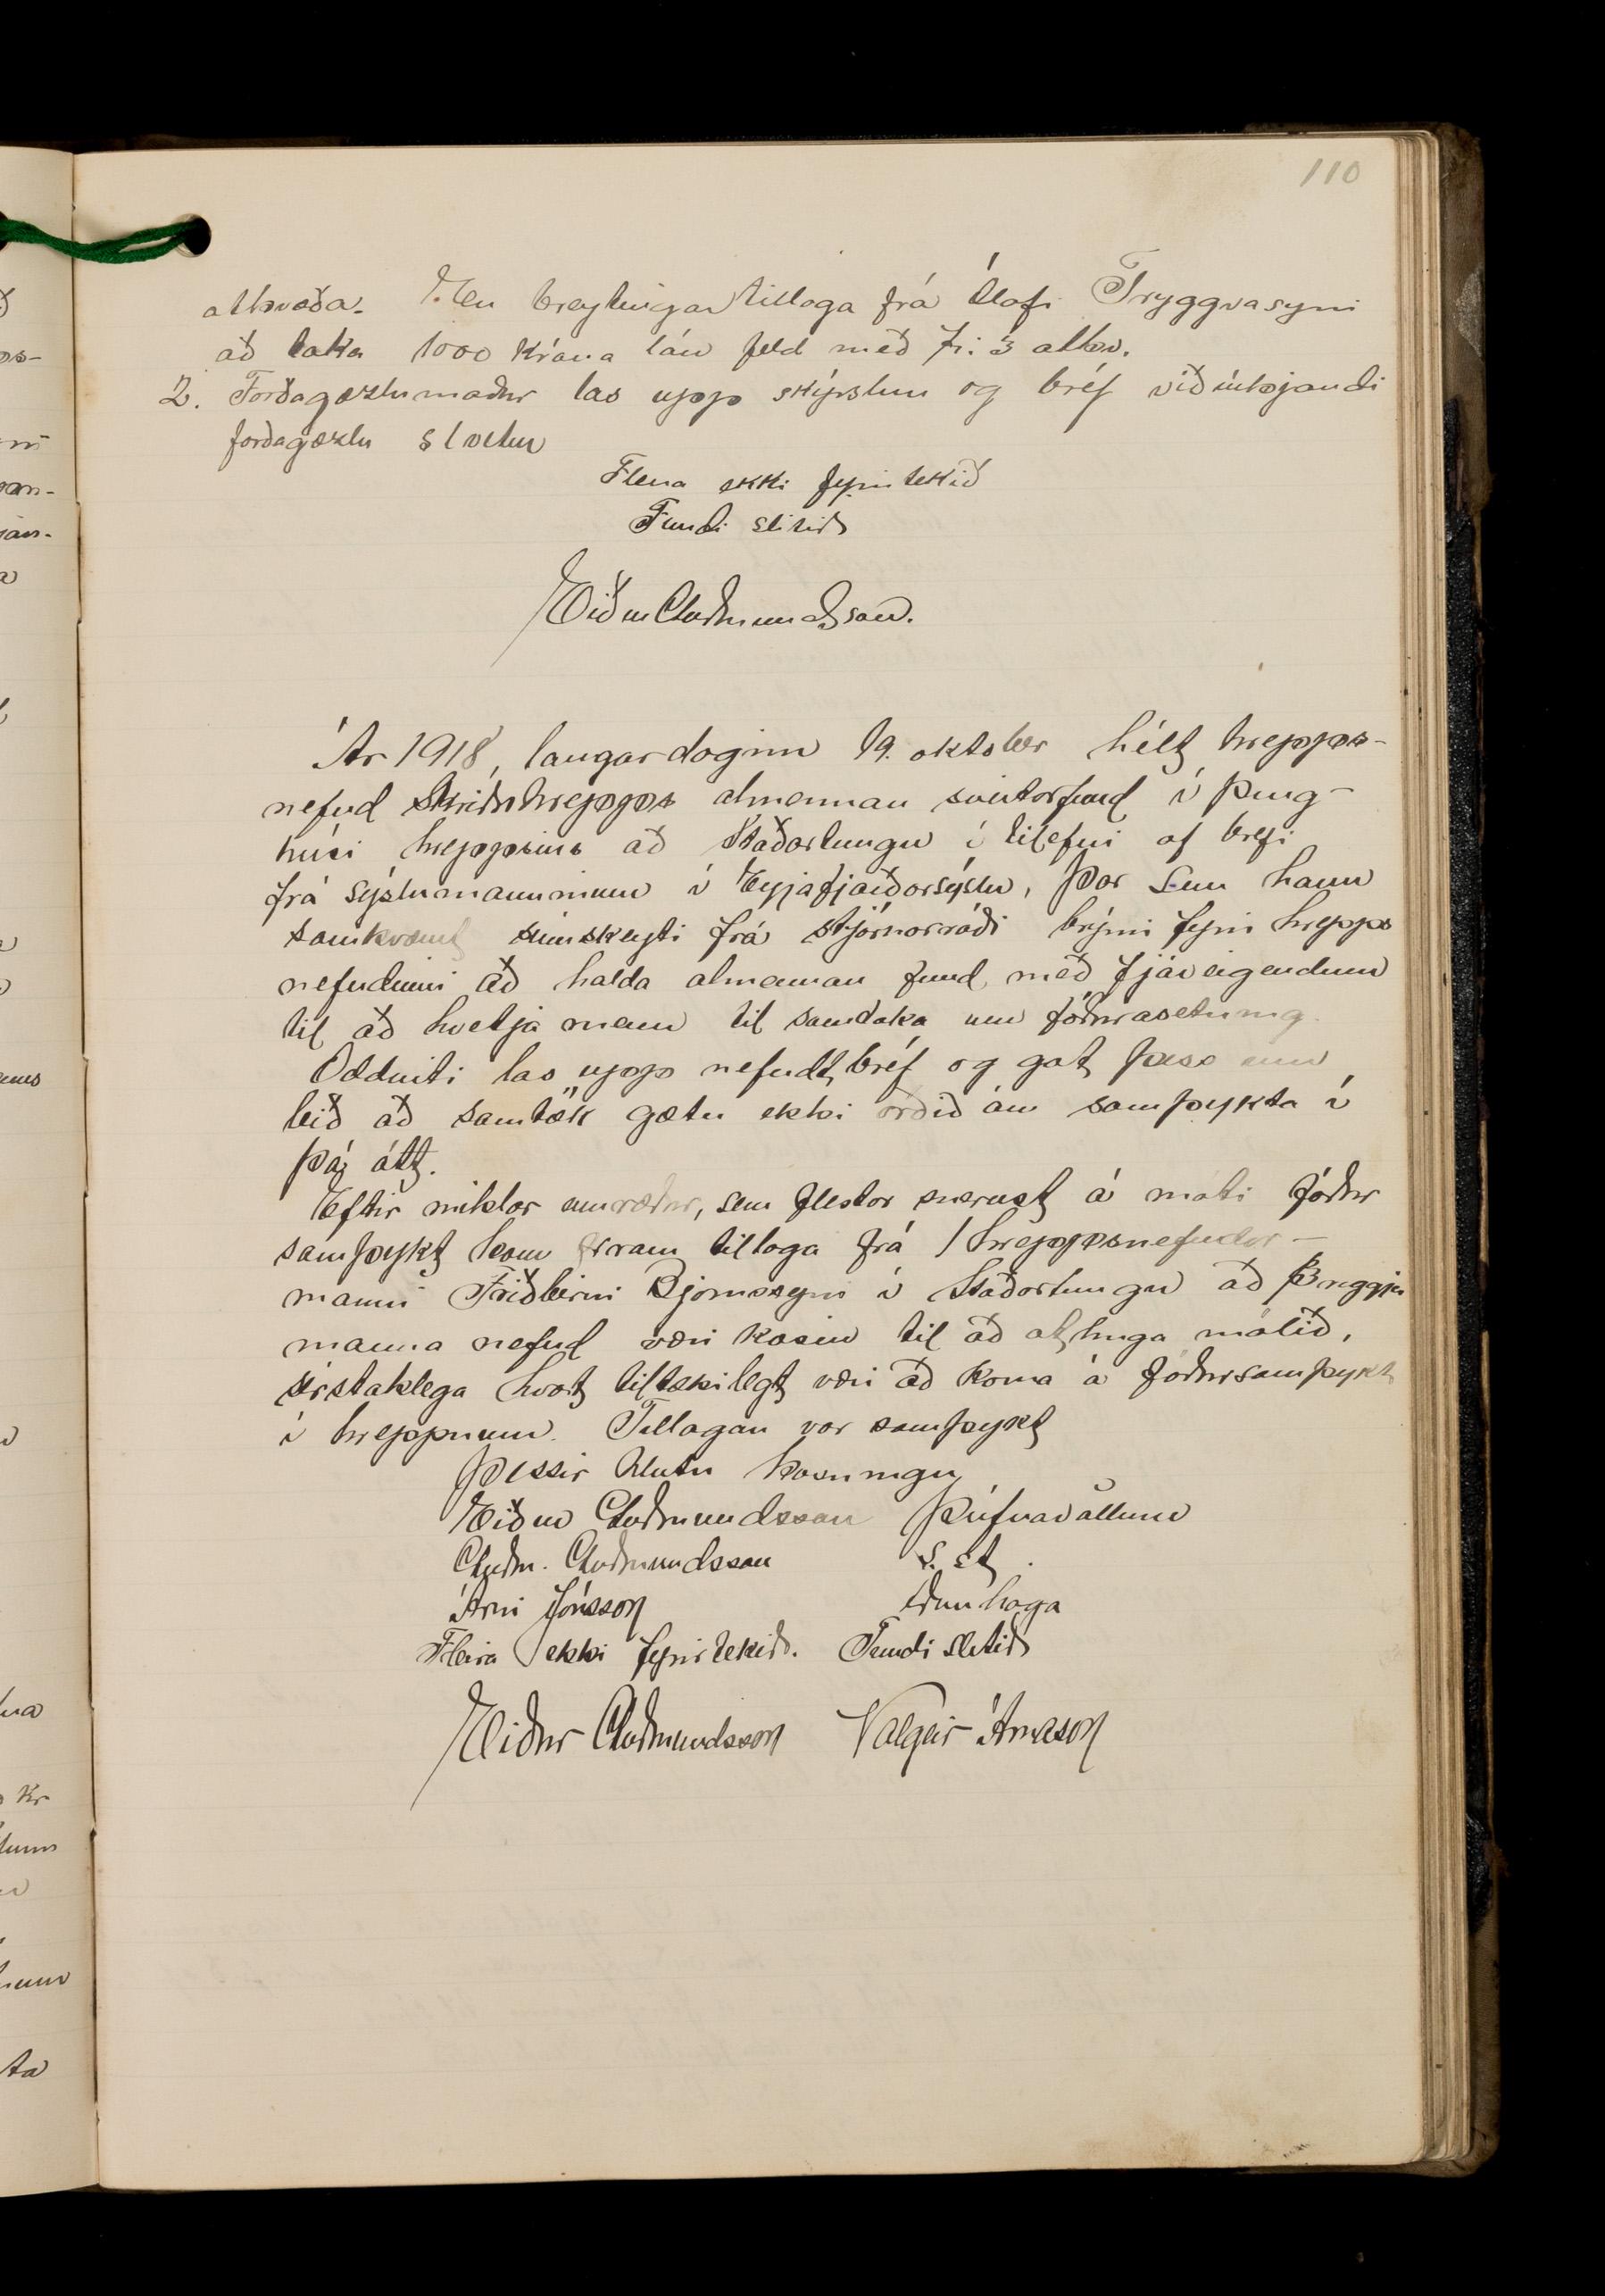 110
atkvæða. En breytingartillaga frá Ólafi Tryggvasyni
að taka 1000 króna lán feld með 7:3 atkv.
2. Forðagæzlumaður las upp skýrslur og bréf viðvíkjandi
forðagæzlu sl vetur
Fleira ekki fyrirtekið
Fundi slitið
Eiður Guðmundsson.
Ár 1918, laugardaginn 19. október hélt hrepps-
nefnd Skriðuhrepps almennan sveitarfund í þing-
húsi hreppsins að Staðartungu í tilefni af bréfi
frá sýslumanninum í Eyjafjarðarsýslu, þar sem hann
samkvæmt símskeyti frá stjórnarráði brýnir fyrir hrepps
nefndinni að halda almennan fund með fjáreigendum
til að hvetja menn til samtaka um fóðurásetning.
Oddviti las upp nefndt bréf og gat þess um
leið að samtök gætu ekki orðið án samþykta í
þá átt.
Eftir miklar umræður, sem flestar snerust á móti fóður
samþykt kom fram tillaga frá 1 hreppsnefndar-
manni Friðbirni Björnssyni í Staðartungu að þriggja
manna nefnd væri kosin til að athuga málið,
sérstaklega hvort tiltækilegt væri að koma á fóðursamþykt
í hreppnum. Tillagan var samþykt
Þessir hlutu kosningu
Eiður Guðmundsson Þúfnavöllum
Guðm. Guðmundsson s. st.
Árni Jónsson
Fleira ekki fyrirtekið. Fundi slitið
Eiður Guðmundsson Valgeir Árnason